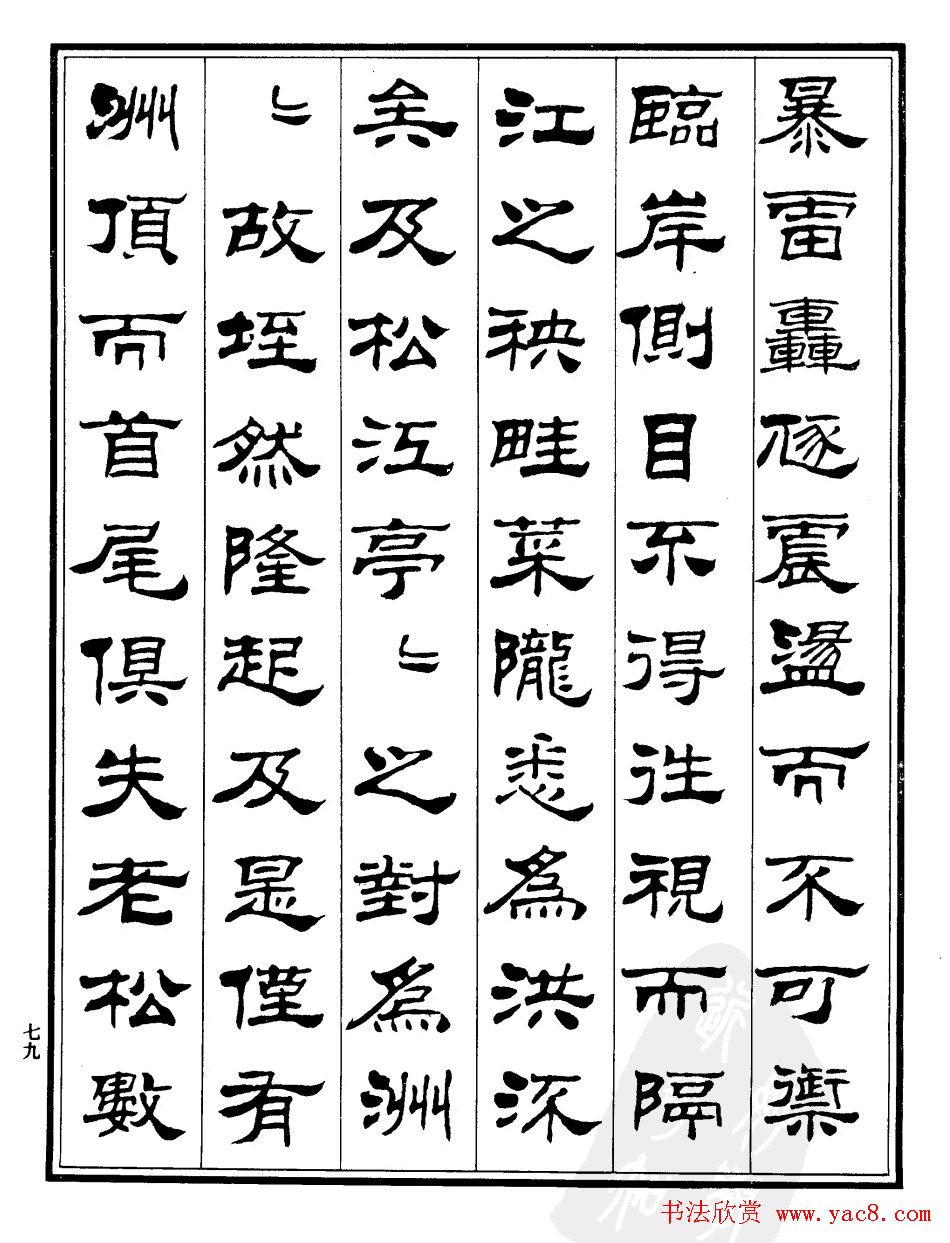 暴雷轟逐震盪而不可禦
臨岸側目不得往視而隔
江之秧畦菜隴悉爲洪流
矣及松江亭〻之對爲洲
〻故垤然隆起及是僅有
洲頂而首尾俱失老松數
七九
书法欣赏 www.yac8.com